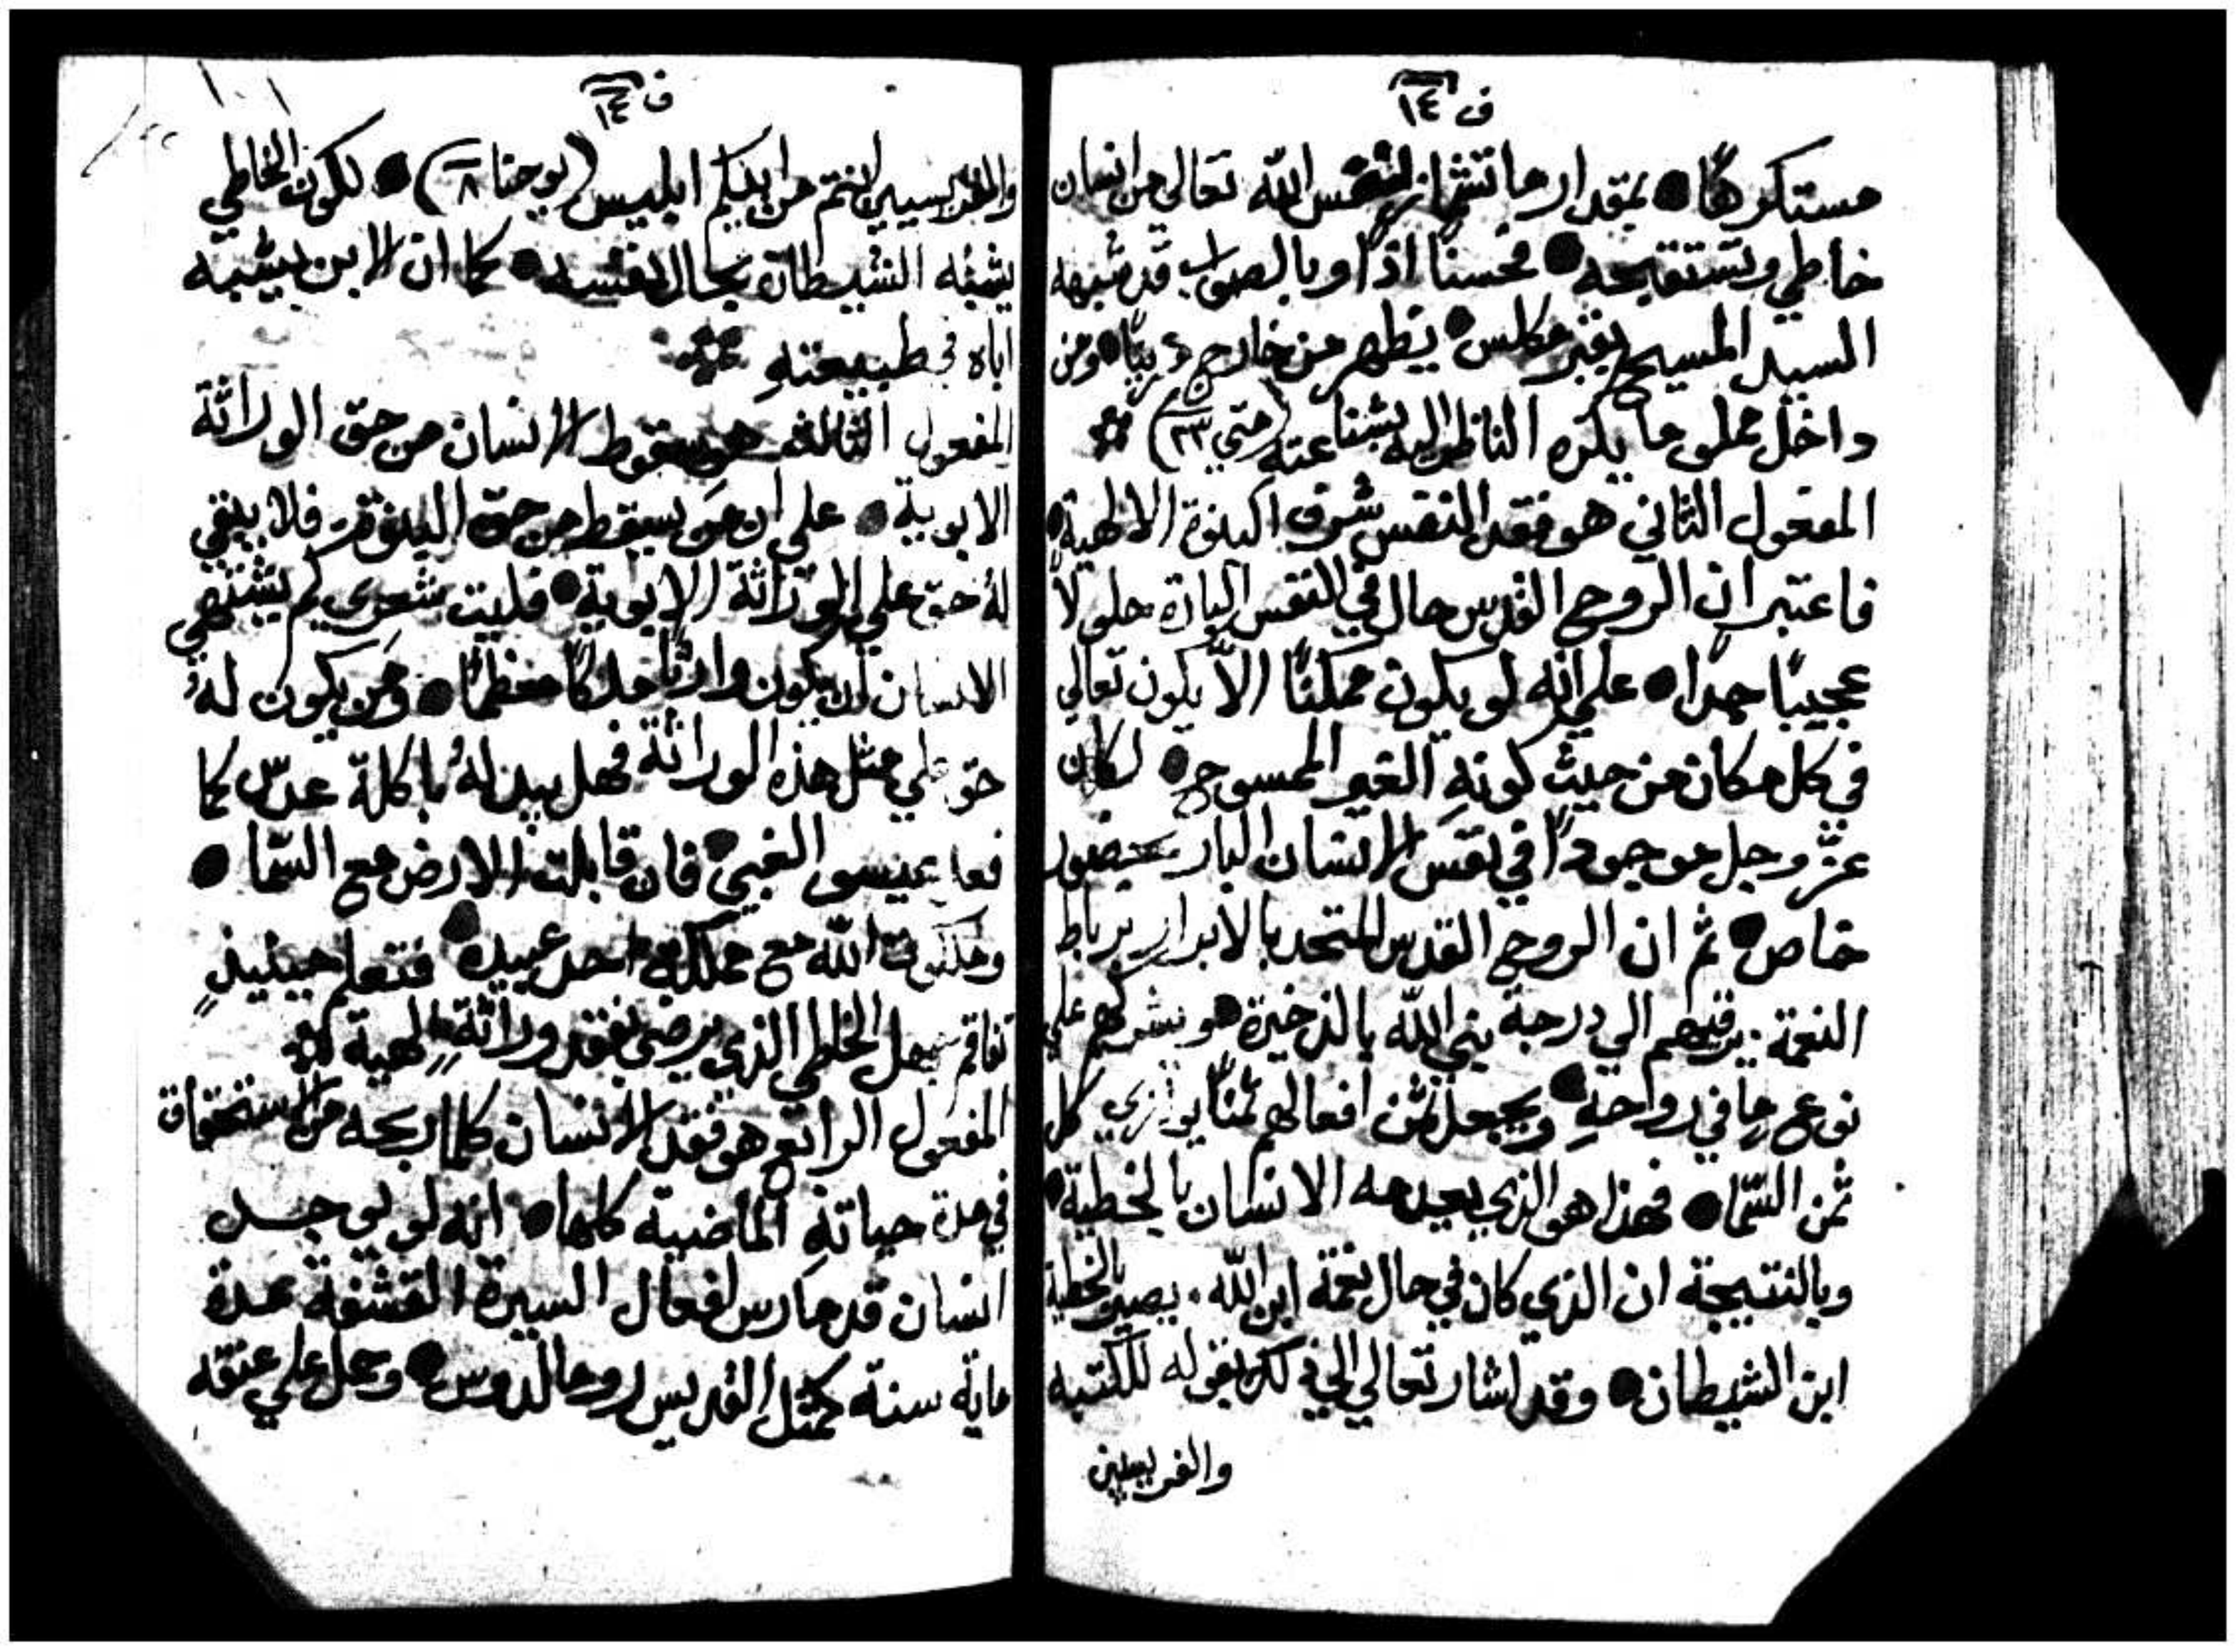 ف ١٤
مستكرهًا • بمقدار ما تشمئز نفس الله تعالي من انسان
خاطي وتستقبحه • فحسنًا اذًا وبالصواب قد شبهه
السيد المسيح بقبر مكلس • يظهر من خارج بهيًا • ومن
داخل مملو ما يكره الناظر اليه بشناعته (متي ٢٣)
المفعول الثاني هو فقد النفس شرف البنوة الالهية •
فاعتبر ان الروح القدس حال في النفس البارة حلولًا
عجيبًا جدا • علي انه لو يكون ممكنًا الّا يكون تعالي
في كل مكان من حيث كونهِ الغير المحسوح • لكان
عزّ وجل موجودًا في نفس الانسان البار بحضور
خاص • ثم ان الروح القدس المتحد بالابرار برباط
النعمة يرقيهم الي درجة بني الله بالذخيرة هو يشركهم علي
نوع ما في رواحهِ • ويجعل ثمن افعالهم ثمنًا يوازي كل
ثمن السّما • فهذا هو الذي يعدمه الانسان بالخطية •
وبالنتيجة ان الذي كان في حال نعمة ابن الله . يصير بالخطية
ابن الشيطان • وقد اشار تعالي الي ذلك بقوله للكتبه
والفريسيين
ف ١٤
والفريسيين انتم من ابيكم ابليس (يوحنا ٨) • لكون الخاطي
يشبه الشيطان بحال نفسه • كما ان الابن يشبه
اباه في طبيعتهِ
المفعول الثالث هو سقوط الانسان من حق الوراثة
الابوية • علي ان من يسقط من حق البنوة فلا يبقي
لهُ حق علي الوراثة الابوية • فليت شعري كم يشتهي
الانسان ان يكون وارثًا ملكًا معظمًا • ومن يكون لهُ
حق علي مثل هذه الوراثة فهل يبدلهُ باكلة عدس كما
فعل عيسو الغبي • فان قابلت الارض مع السّما •
وملكوت الله مع مملكة احد عبيده • فتعلم حينيذٍ
تفاقم جهل الخاطي الذي يرضي بفقد وراثةٍ الهية
المفعول الرابع هو فقد الانسان كلما ربحه من الاستحقاق
في مدة حياتهِ الماضية كلها • انه لو يوجد
انسان قد مارس افعال السيرة القشفة عدة
ماية سنة كمثل القديس روما لدوس • وحمل علي عنقه